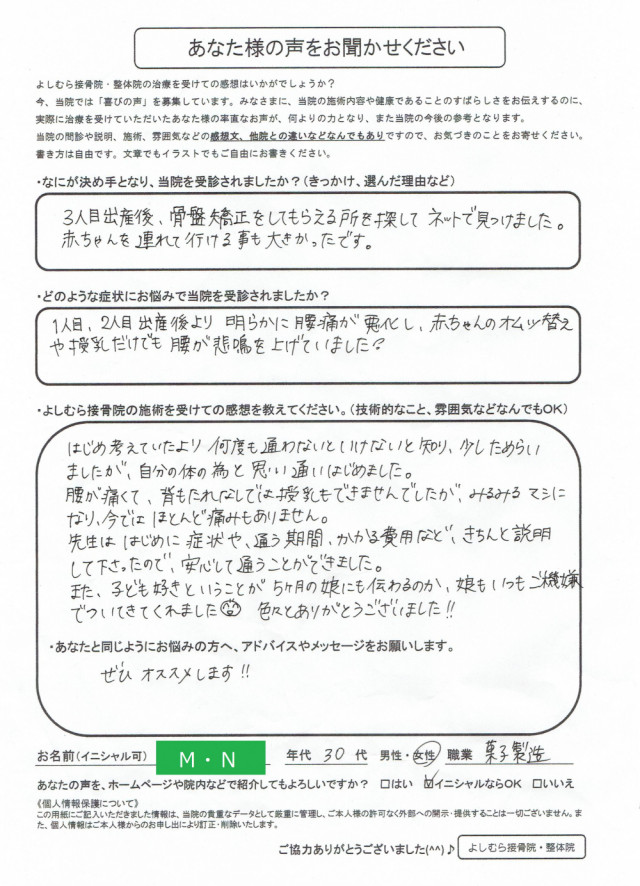 あなた様の声をお聞かせください
よしむら接骨院・整体院の治療を受けての感想はいかがでしょうか？
今、当院では「喜びの声」を募集しています。みなさまに、当院の施術内容や健康であることのすばらしさをお伝えするのに、
実際に治療を受けていただいたあなた様の率直なお声が、何よりの力となり、また当院の今後の参考となります。
当院の問診や説明、施術、雰囲気などの感想文、他院との違いなどなんでもありですので、お気づきのことをお寄せください。
書き方は自由です。文章でもイラストでもご自由にお書きください。
・なにが決め手となり、当院を受診されましたか？（きっかけ、選んだ理由など）
3人目出産後、骨盤矯正をしてもらえる所を探して ネットで見つけました。
赤ちゃんを連れて行ける事も大きかったです。
・どのような症状にお悩みで当院を受診されましたか？
1人目、2人目出産後より 明らかに腰痛が悪化し、赤ちゃんのオムツ替え
や授乳だけでも腰が悲鳴を上げていました？
・よしむら接骨院の施術を受けての感想を教えてください。（技術的なこと、雰囲気などなんでもOK）
はじめ考えていたより 何度も通わないといけないと知り、少しためらい
ましたが、自分の体の為と思い通いはじめました。
腰が痛くて、背もたれなしでは授乳もできませんでしたが、みるみるマシに
なり、今では ほとんど痛みもありません。
先生は はじめに 症状や、通う期間、かかる費用など、きちんと説明
して下さったので、安心して通うことができました。
また、子ども好きということが 5ヶ月の娘にも伝わるのか、娘もいつもご機嫌
でついてきてくれました 色々とありがとうございました!!
・あなたと同じようにお悩みの方へ、アドバイスやメッセージをお願いします。
ぜひ オススメします!!
お名前（イニシャル可） M・N 年代 30 代 男性・女性 職業 菓子製造
あなたの声を、ホームページや院内などで紹介してもよろしいですか？ □はい ☑イニシャルならOK □いいえ
《個人情報保護について》
この用紙にご記入いただきました情報は、当院の貴重なデータとして厳重に管理し、ご本人様の許可なく外部への開示・提供することは一切ございません。ま
た、個人情報はご本人様からのお申し出により訂正・削除いたします。
ご協力ありがとうございました(^^)♪ よしむら接骨院・整体院